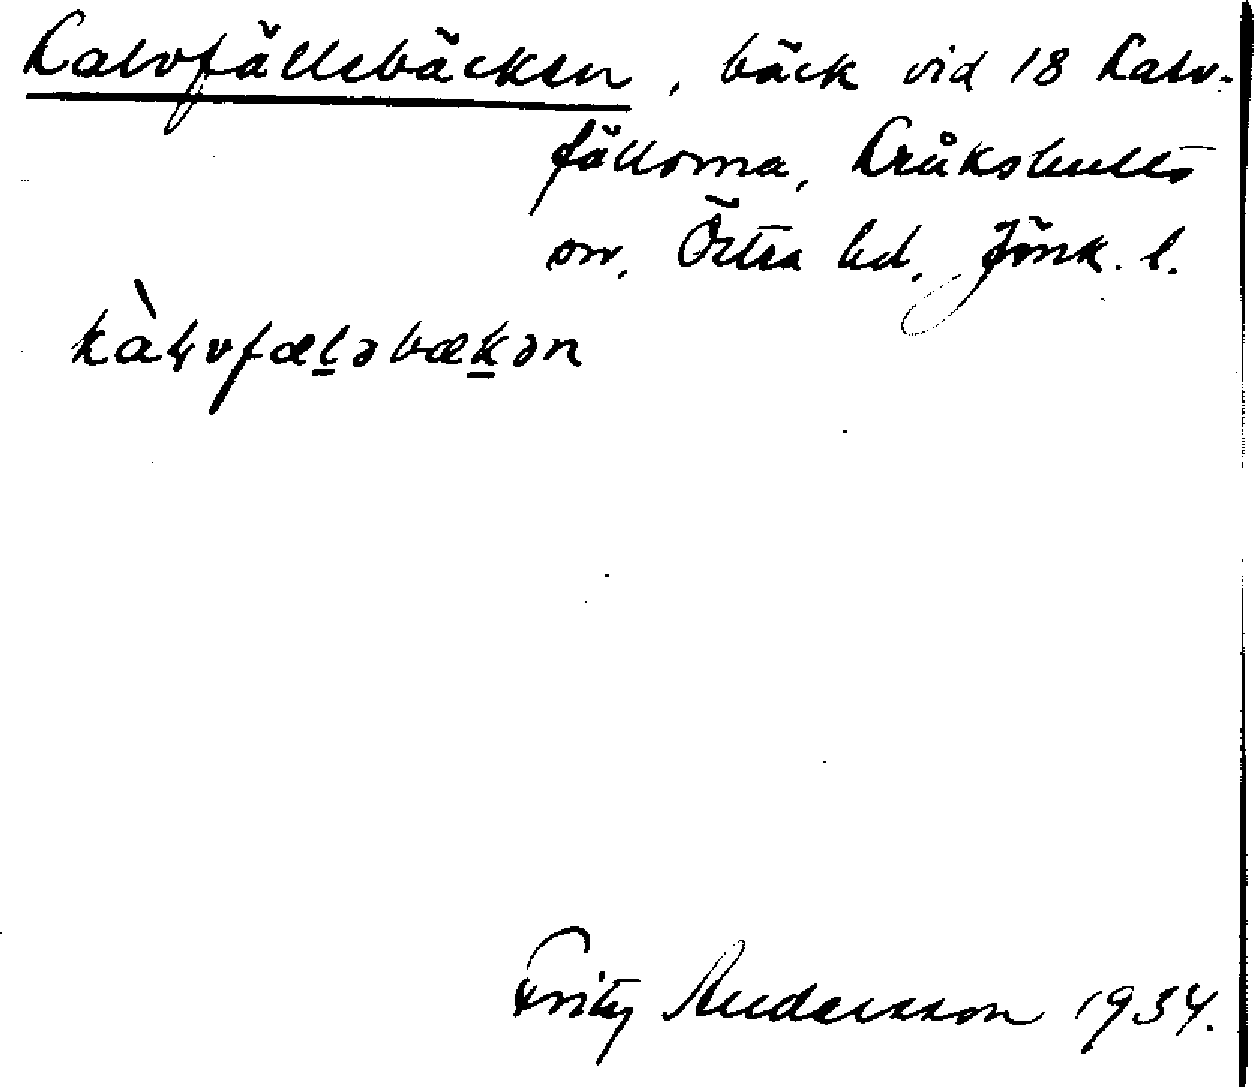 Kalvfällebäcken, bäck vid 18 Kalv-
fällorna, Kråkshults
sn, Östra hd, Jönk. l.
kàḷvfæl̲əbæk̲ən
Fritz Andersson 1934.